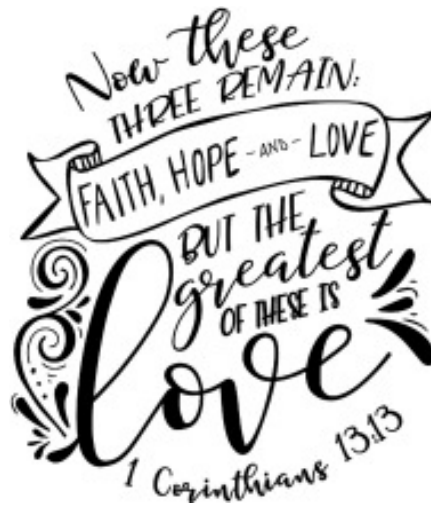 Now these
THREE REMAIN:
FAITH, HOPE -AND- LOVE
BUT THE
greatest
OF THESE IS
love
1 Corinthians 13:13